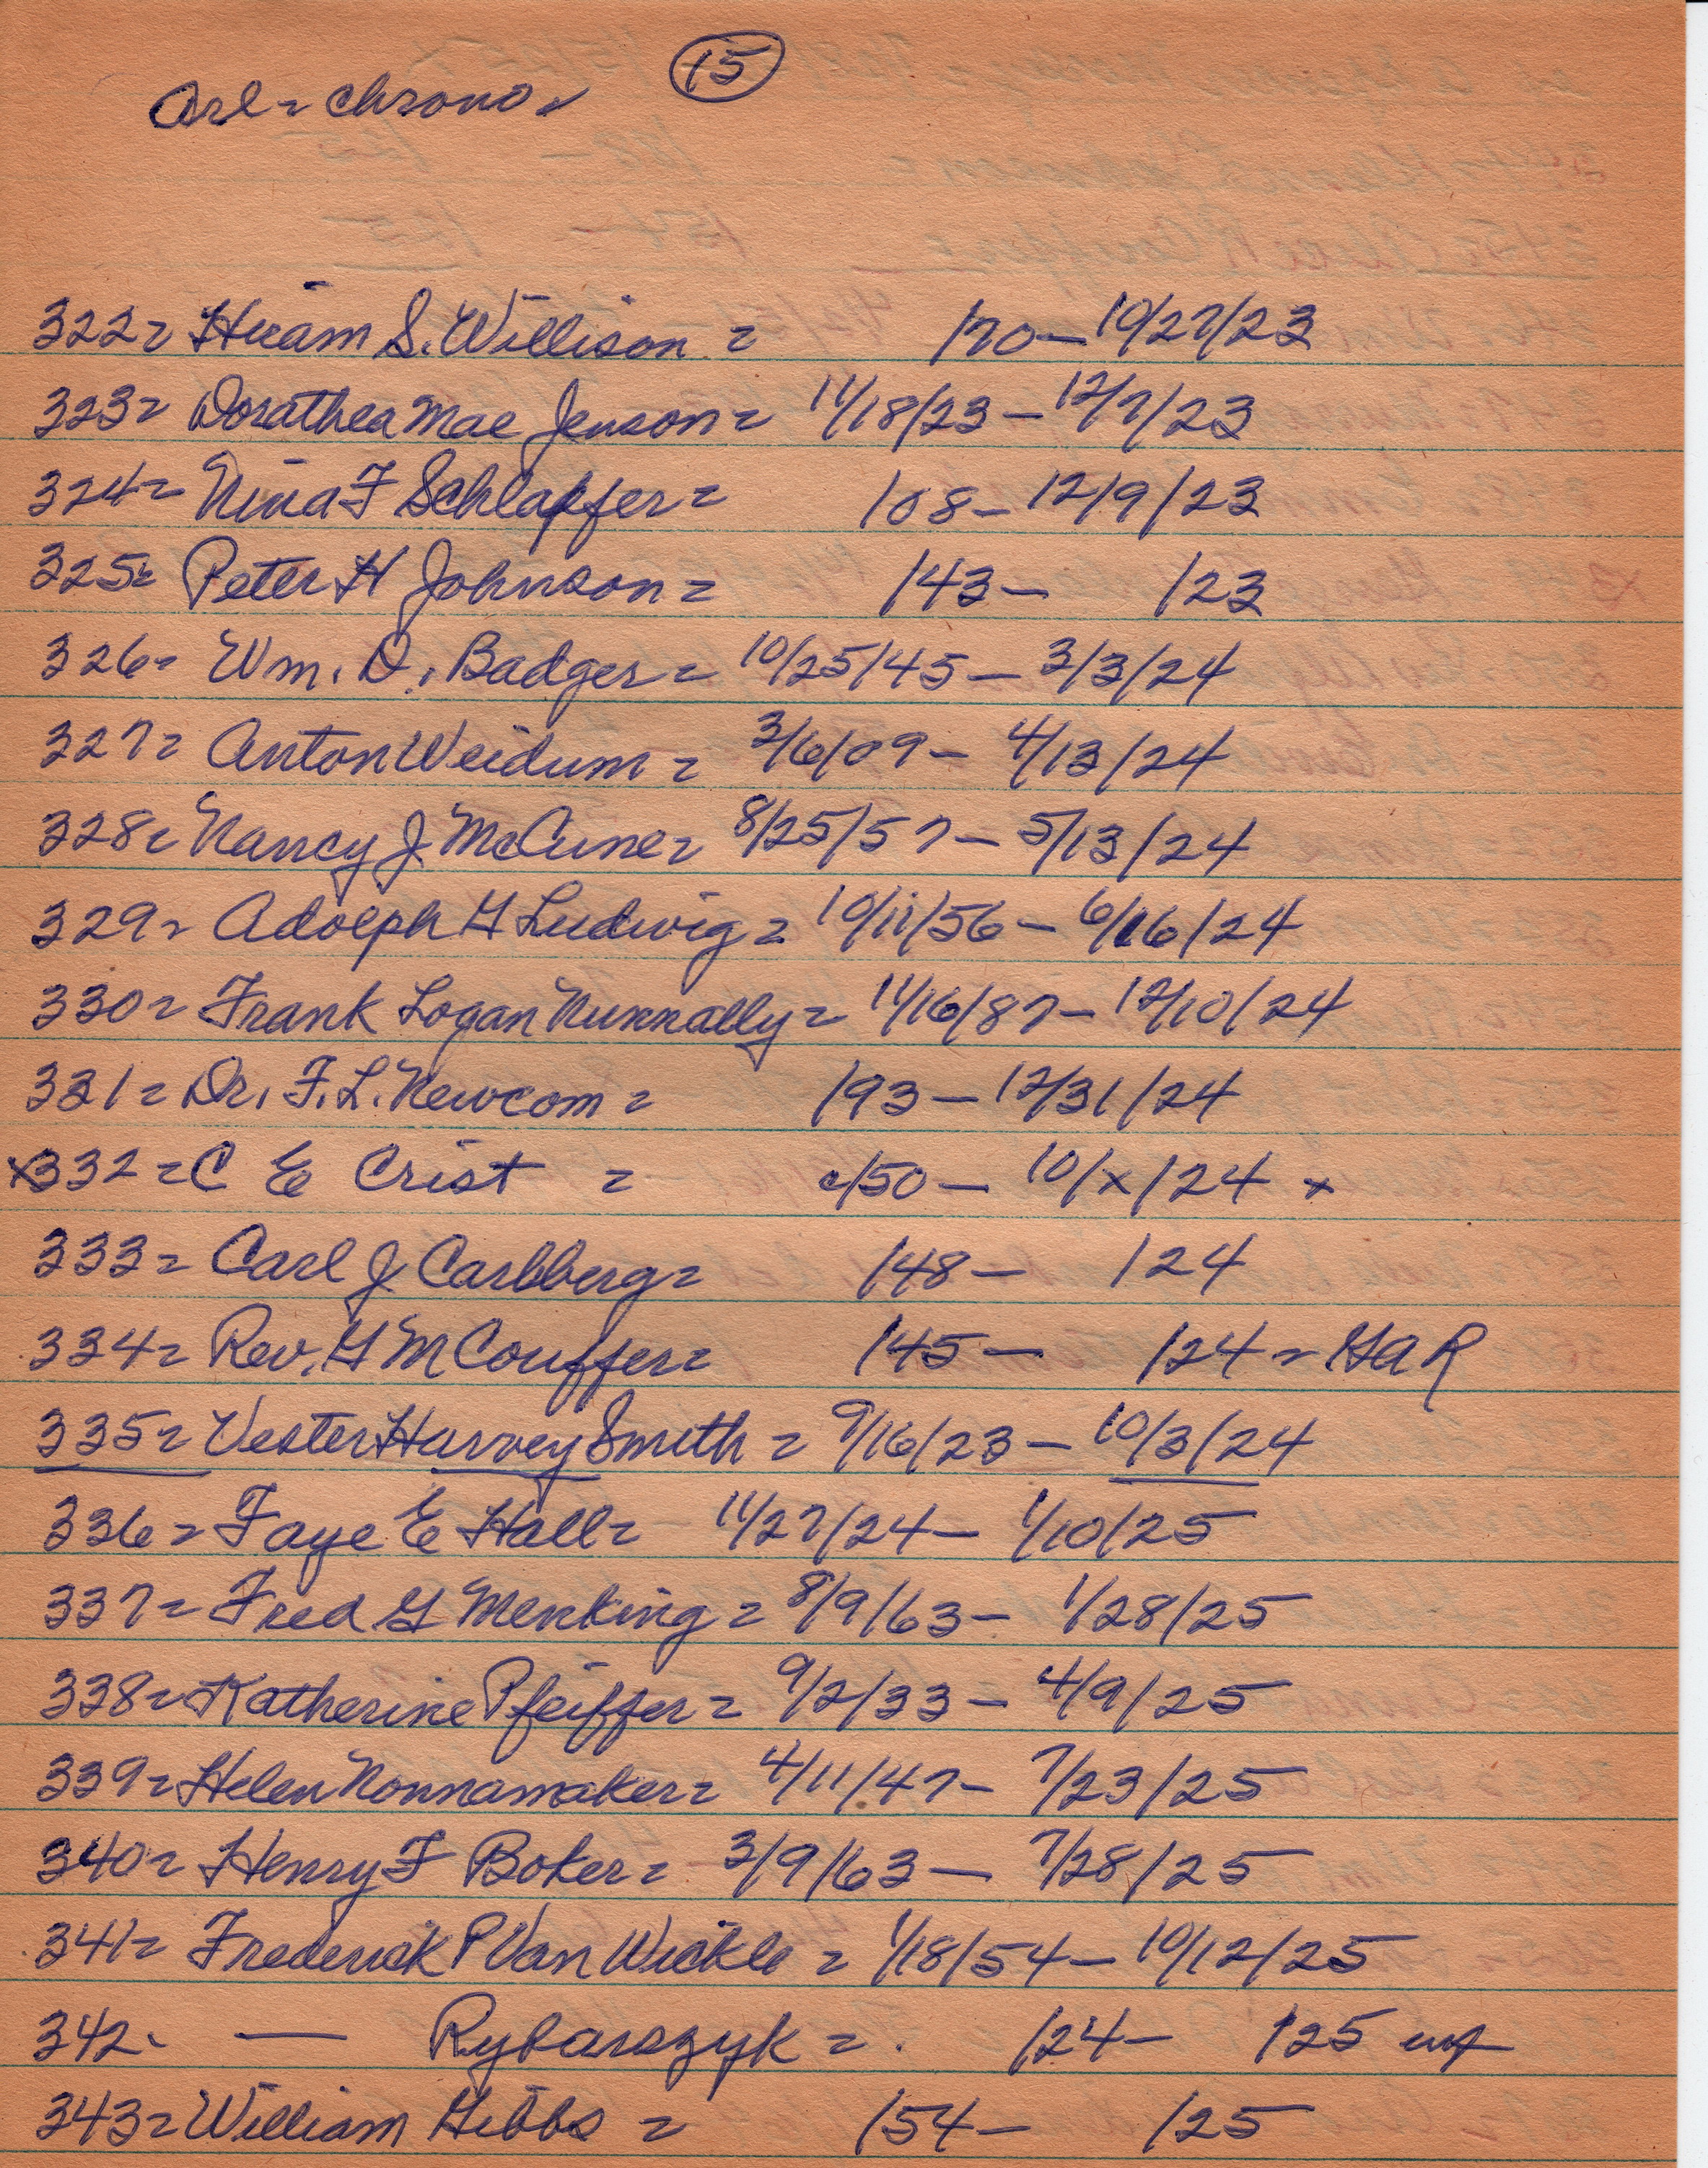 15
Arl = chrono.
322 = Hiram S. Willison = /70 - 10/27/23
323 = Dorathea Mae Jenson = 11/18/23 - 12/7/23
324 = Nina F Schlapfer = /08 - 12/9/23
325 = Peter H Johnson = /43 - /23
326 = Wm. D. Badger = 10/25/45 - 3/3/24
327 = Anton Weidum = 3/6/09 - 4/13/24
328 = Nancy J McCune = 8/25/57 - 5/13/24
329 = Adolph G Ludwig = 10/11/56 - 6/16/24
330 = Frank Logan Nunnally = 11/16/87 - 12/10/24
331 = Dr. F. L. Newcom = /93 - 12/31/24
x332 = C E Crist = c/50 - 10/x/24 x
333 = Carl J Carlberg = /48 - /24
334 = Rev. G M Couffer = /45 - /24 = GAR
335 = Vester Harvey Smith = 9/16/23 - 10/3/24
336 = Faye E Hall = 11/27/24 - 1/10/25
337 = Fred G Menking = 8/9/63 - 1/28/25
338 = Katherine Pfeiffer = 9/2/33 - 4/9/25
339 = Helen Nonnamaker = 4/11/47 - 7/23/25
340 = Henry F Boker = 3/9/63 - 7/28/25
341 = Frederick P Van Wickle = 1/18/54 - 10/12/25
342. — Rybarszyk = . /24 - /25 inf
343 = William Gibbs = /54 - /25